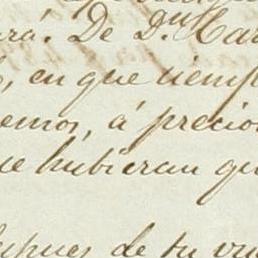 ará. De D.ⁿ Car
, en que tiemp
emos, á precio
ue hubieran qu
espues de tu